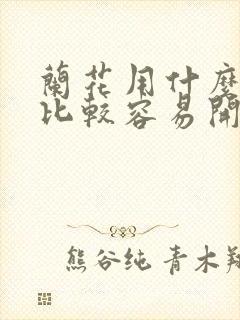 蘭花用什麼
比較容易開
熊谷纯 青木翔